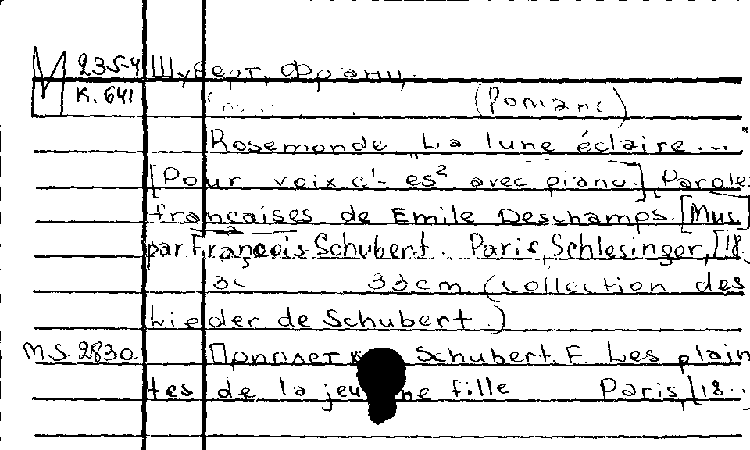 М 2354 Шуберт, Франц.
К. 641 (Романс)
Rosemonde „La lune éclaire..."
[Pour voix d'- es² avec piano]. Parole
françaises de Emile Deschamps. [Mus.]
par François Schubert. Paris, Schlesinger, [18
33cm (Collection des
Lieder de Schubert.)
MS 2830 Приплет к Schubert. F. Les plain
tes de la jeune fille Paris, [18..